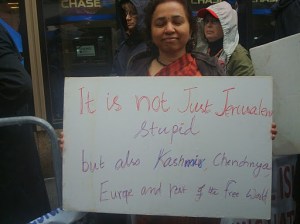 CHASE
CHASE
It is not Just Jerusalem
stupid
but also Kashmir Chechnya
Europe and rest of the Free World